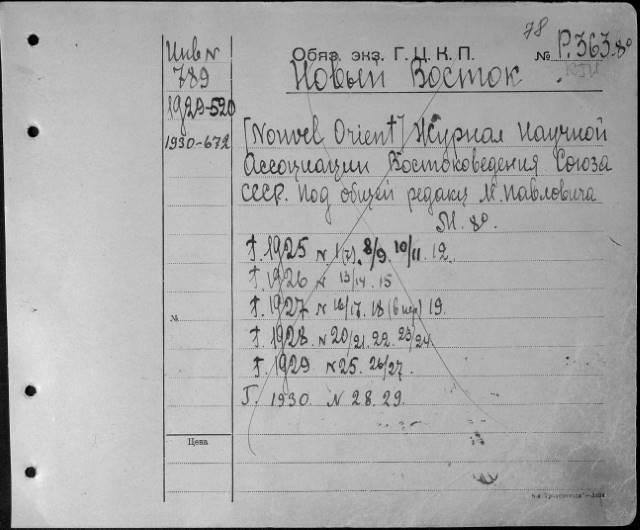 78
Инв N
789
1929-520
1930-672
Обяз. экз. Г. Ц. К. П.
№ Р.363.8°
Новый Восток
[Nouvel Orient] Журнал Научной
Ассоциации Востоковедения Союза
СССР. Под общей редакц М. Павловича
М. 8°.
Г. 1925 N 1(7). 8/9. 10/11. 12.
Г. 1926 N 13/14. 15
Г. 1927 N 16/17. 18 19.
Г. 1928. N 20/21. 22. 23/24
Г. 1929 N 25. 26/27.
Г. 1930. N 28. 29.
№
Цена